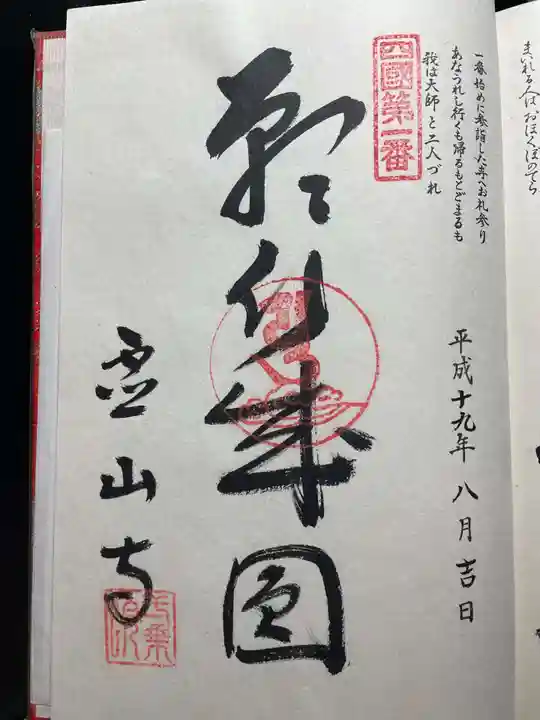 まいれる人は おほくぼのてら
一番始めに参詣した寺へお札参り
あなうれし行くも帰るもとどまるも
我は大師と二人づれ
平成十九年 八月吉日
四國第一番
願行成圓
霊山寺